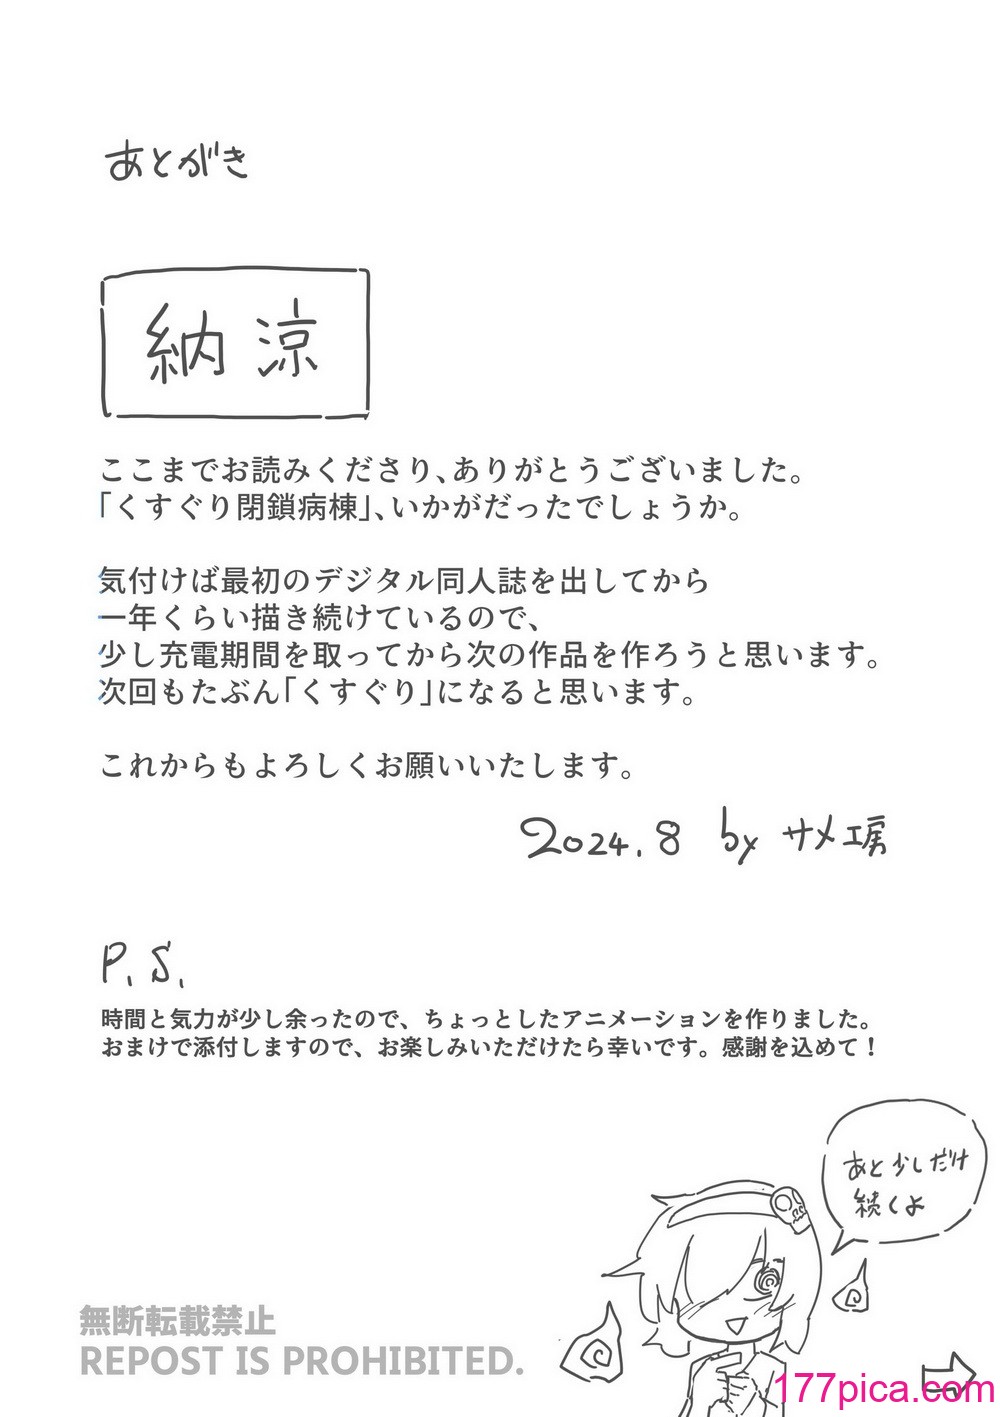 あとがき
納涼
ここまでお読みくださり、ありがとうございました。
「くすぐり閉鎖病棟」、いかがだったでしょうか。
気付けば最初のデジタル同人誌を出してから
一年くらい描き続けているので、
少し充電期間を取ってから次の作品を作ろうと思います。
次回もたぶん「くすぐり」になると思います。
これからもよろしくお願いいたします。
2024.8 by サメ工房
P.S.
時間と気力が少し余ったので、ちょっとしたアニメーションを作りました。
おまけで添付しますので、お楽しみいただけたら幸いです。感謝を込めて！
あと少しだけ
続くよ
無断転載禁止
REPOST IS PROHIBITED.
177pica.com